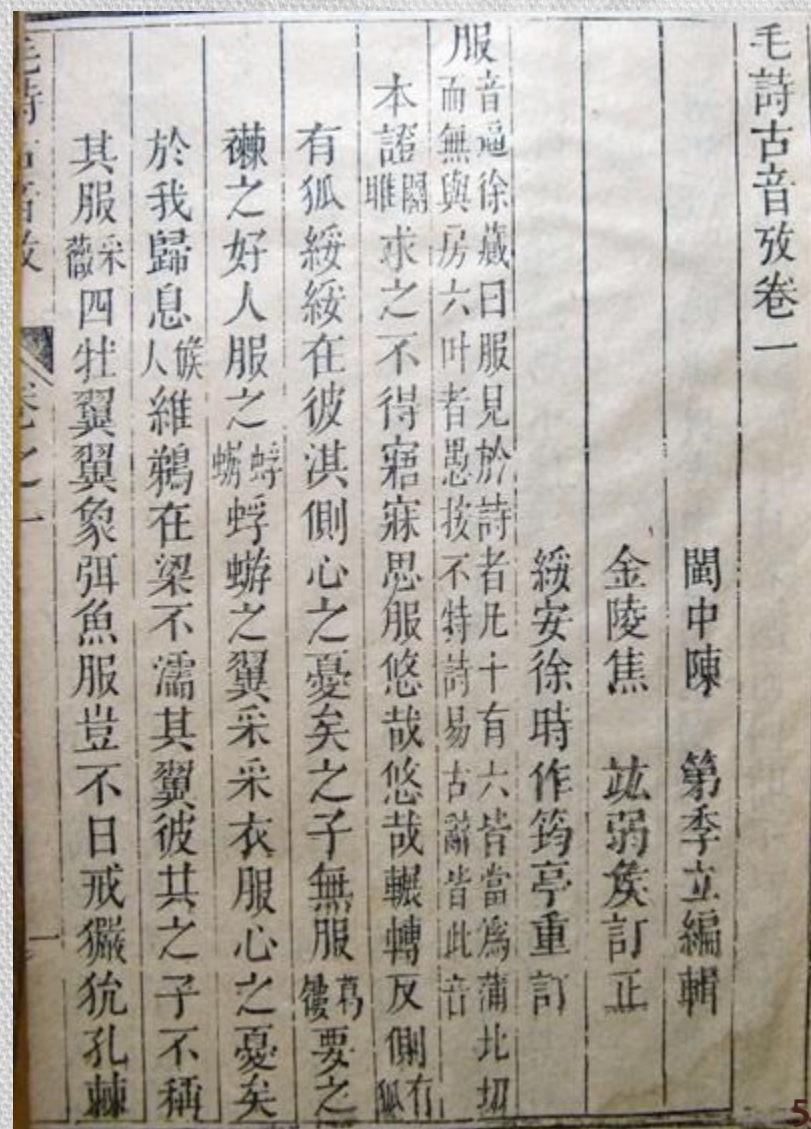 毛詩古音攷卷一
閩中陳 第季立編輯
金陵焦 竑弱矦訂正
綏安徐時作筠亭重訂
服音逼徐蕆曰服見於詩者凡十有六皆當爲蒲北切
而無與房六叶者愚按不特詩易古辭皆此音
本證關雎求之不得寤寐思服悠哉悠哉輾轉反側有狐
有狐綏綏在彼淇側心之憂矣之子無服葛屨要之
襋之好人服之蜉蝣蜉蝣之翼采采衣服心之憂矣
於我歸息候人維鵜在梁不濡其翼彼其之子不稱
其服采薇四牡翼翼象弭魚服豈不日戒玁狁孔棘
毛詩古音攷 卷之一 一
5